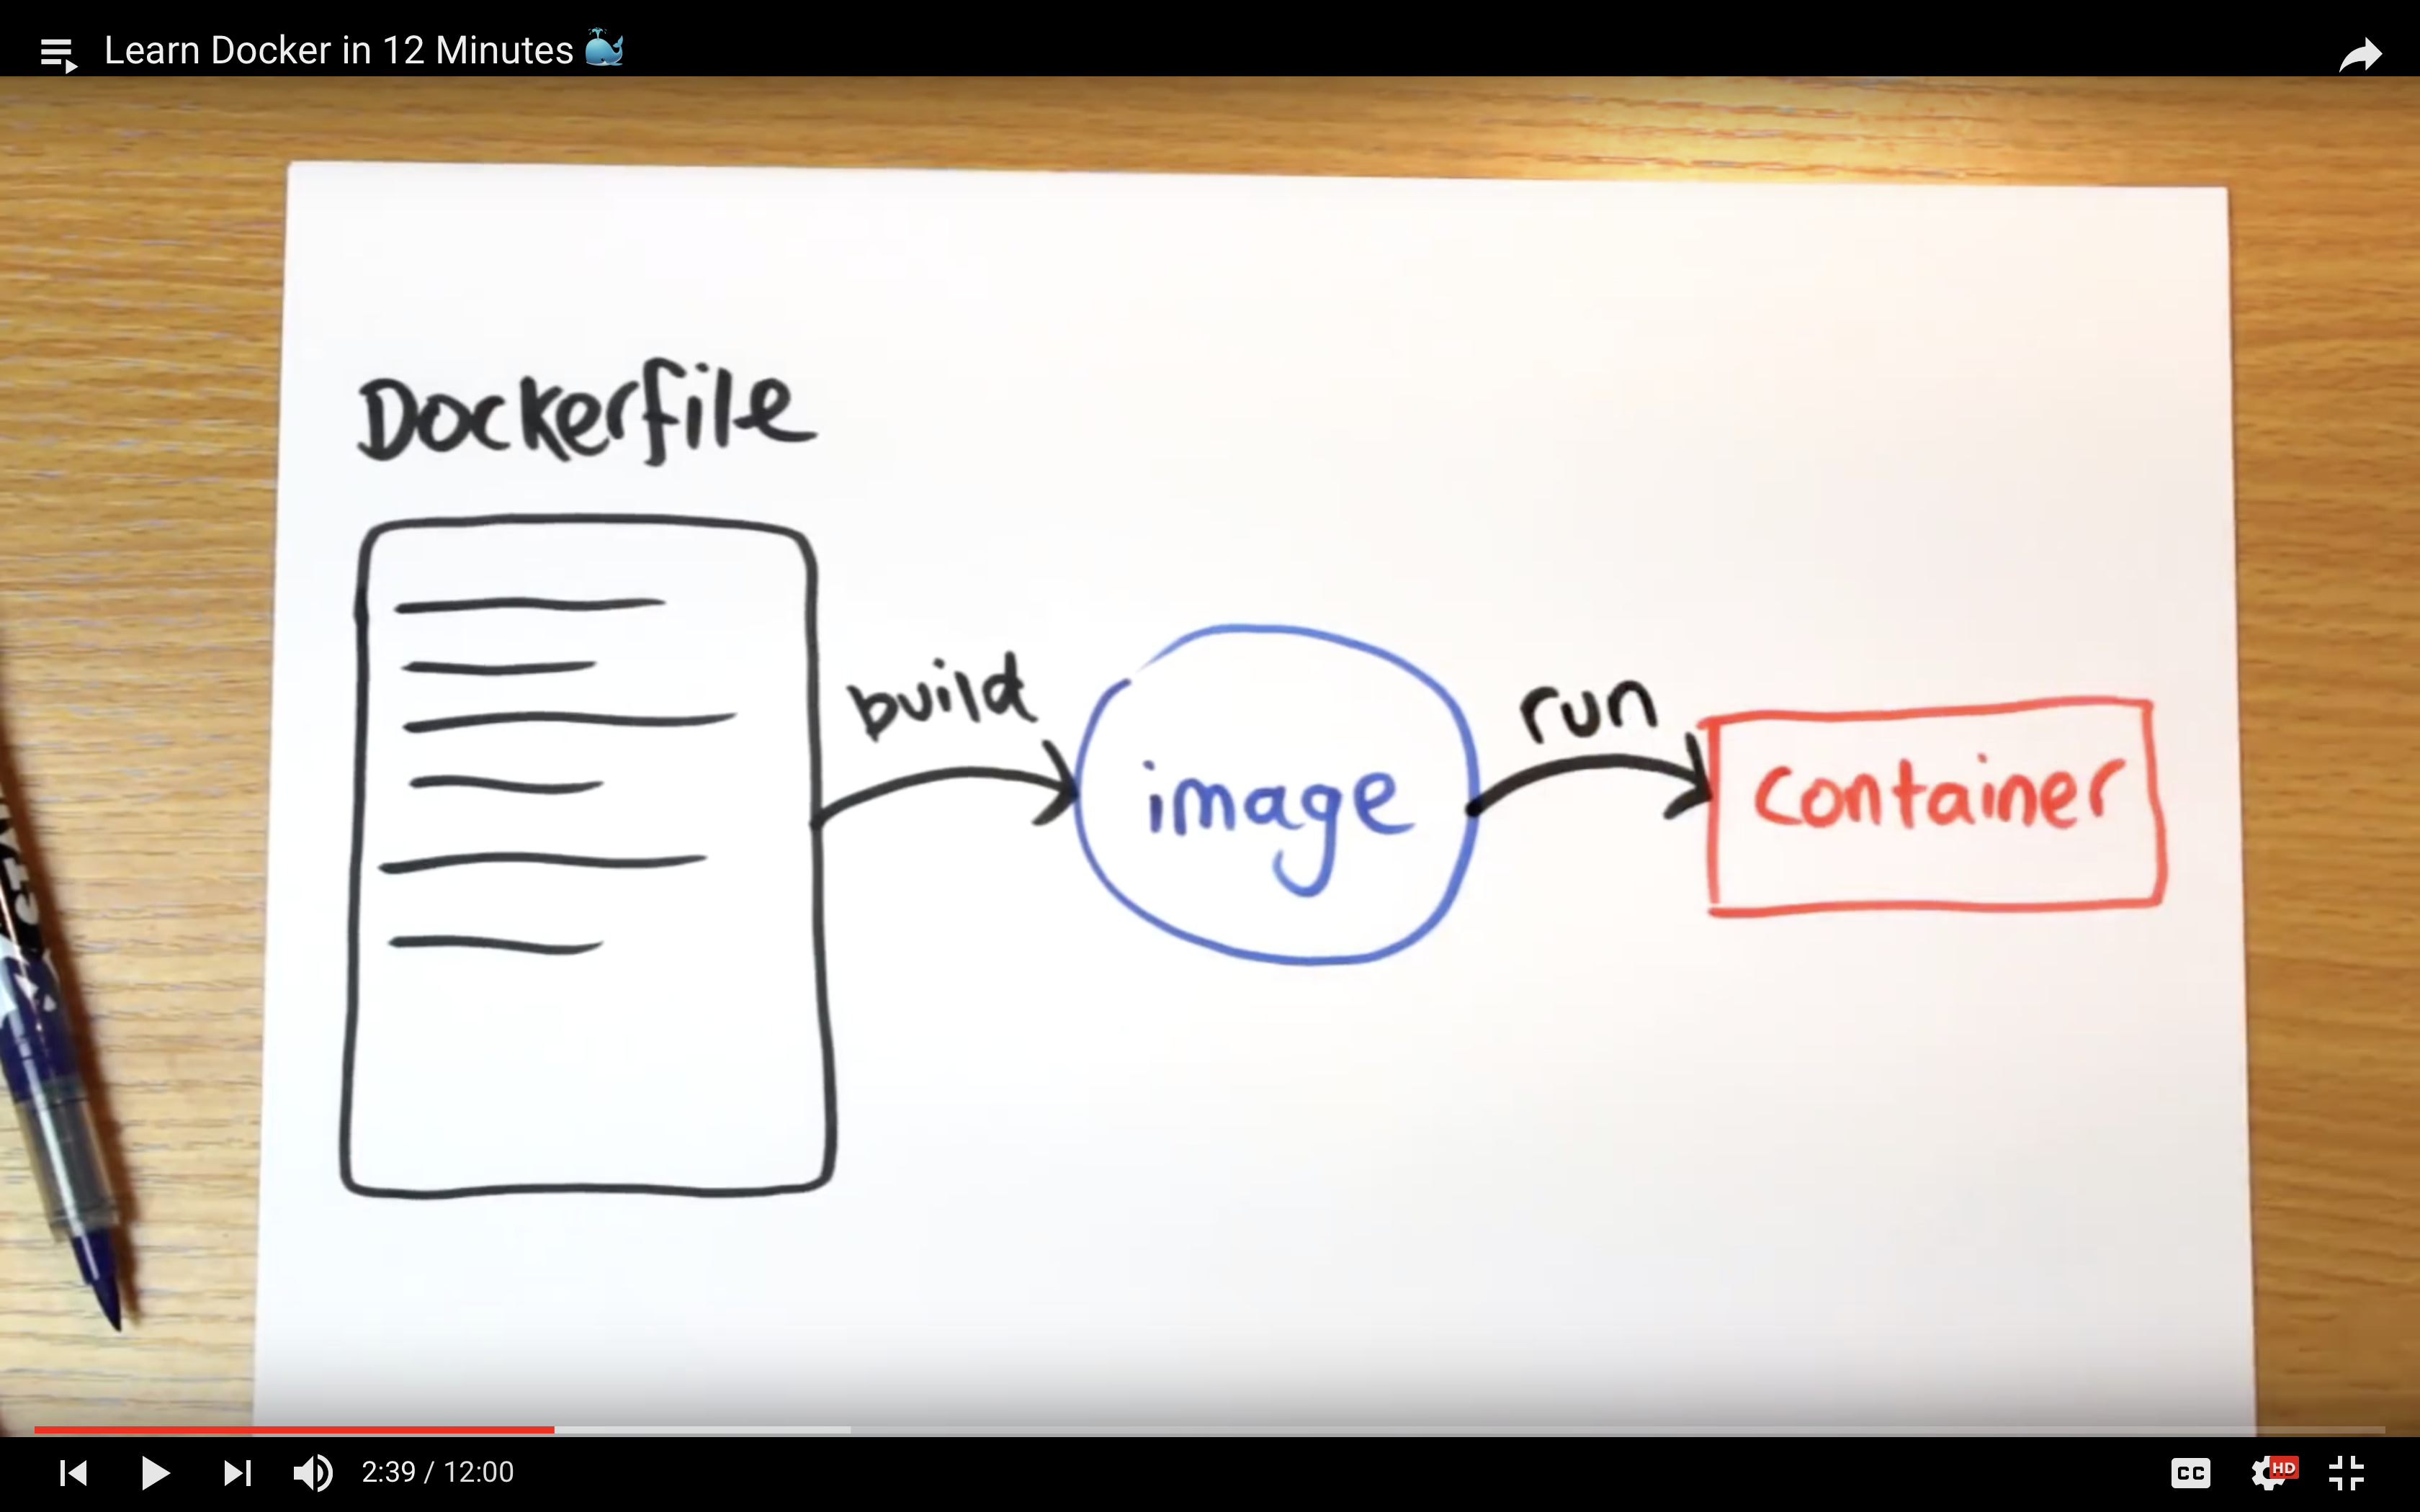 Learn Docker in 12 Minutes 🐳
Dockerfile
build
image
run
container
2:39 / 12:00
CC
HD